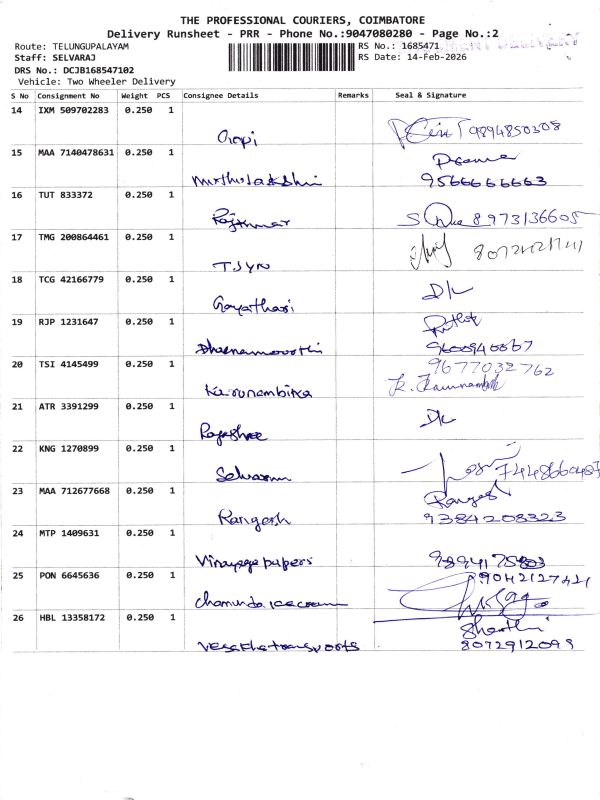 THE PROFESSIONAL COURIERS, COIMBATORE
Delivery Runsheet - PRR - Phone No.:9047080280 - Page No.:2
Route: TELUNGUPALAYAM RS No.: 1685471
Staff: SELVARAJ RS Date: 14-Feb-2026
DRS No.: DCJB168547102
Vehicle: Two Wheeler Delivery
S No Consignment No Weight PCS Consignee Details Remarks Seal & Signature
14 IXM 509702283 0.250 1
Gopi 9894850308
15 MAA 7140478631 0.250 1
Muthulakshmi 9566666663
16 TUT 833372 0.250 1
Rajkumar 8973136605
17 TMG 200864461 0.250 1
18 TCG 42166779 0.250 1
Gayathari D/L
19 RJP 1231647 0.250 1
Dheenamoorthi
20 TSI 4145499 0.250 1 9677032762
Karunambika
21 ATR 3391299 0.250 1
Rajashree D/L
22 KNG 1270899 0.250 1
23 MAA 712677668 0.250 1 Ranges
Rangesh 9384208323
24 MTP 1409631 0.250 1
Vinayaga papers 9894175803
25 PON 6645636 0.250 1
Chamunda icecream
26 HBL 13358172 0.250 1
8072912099